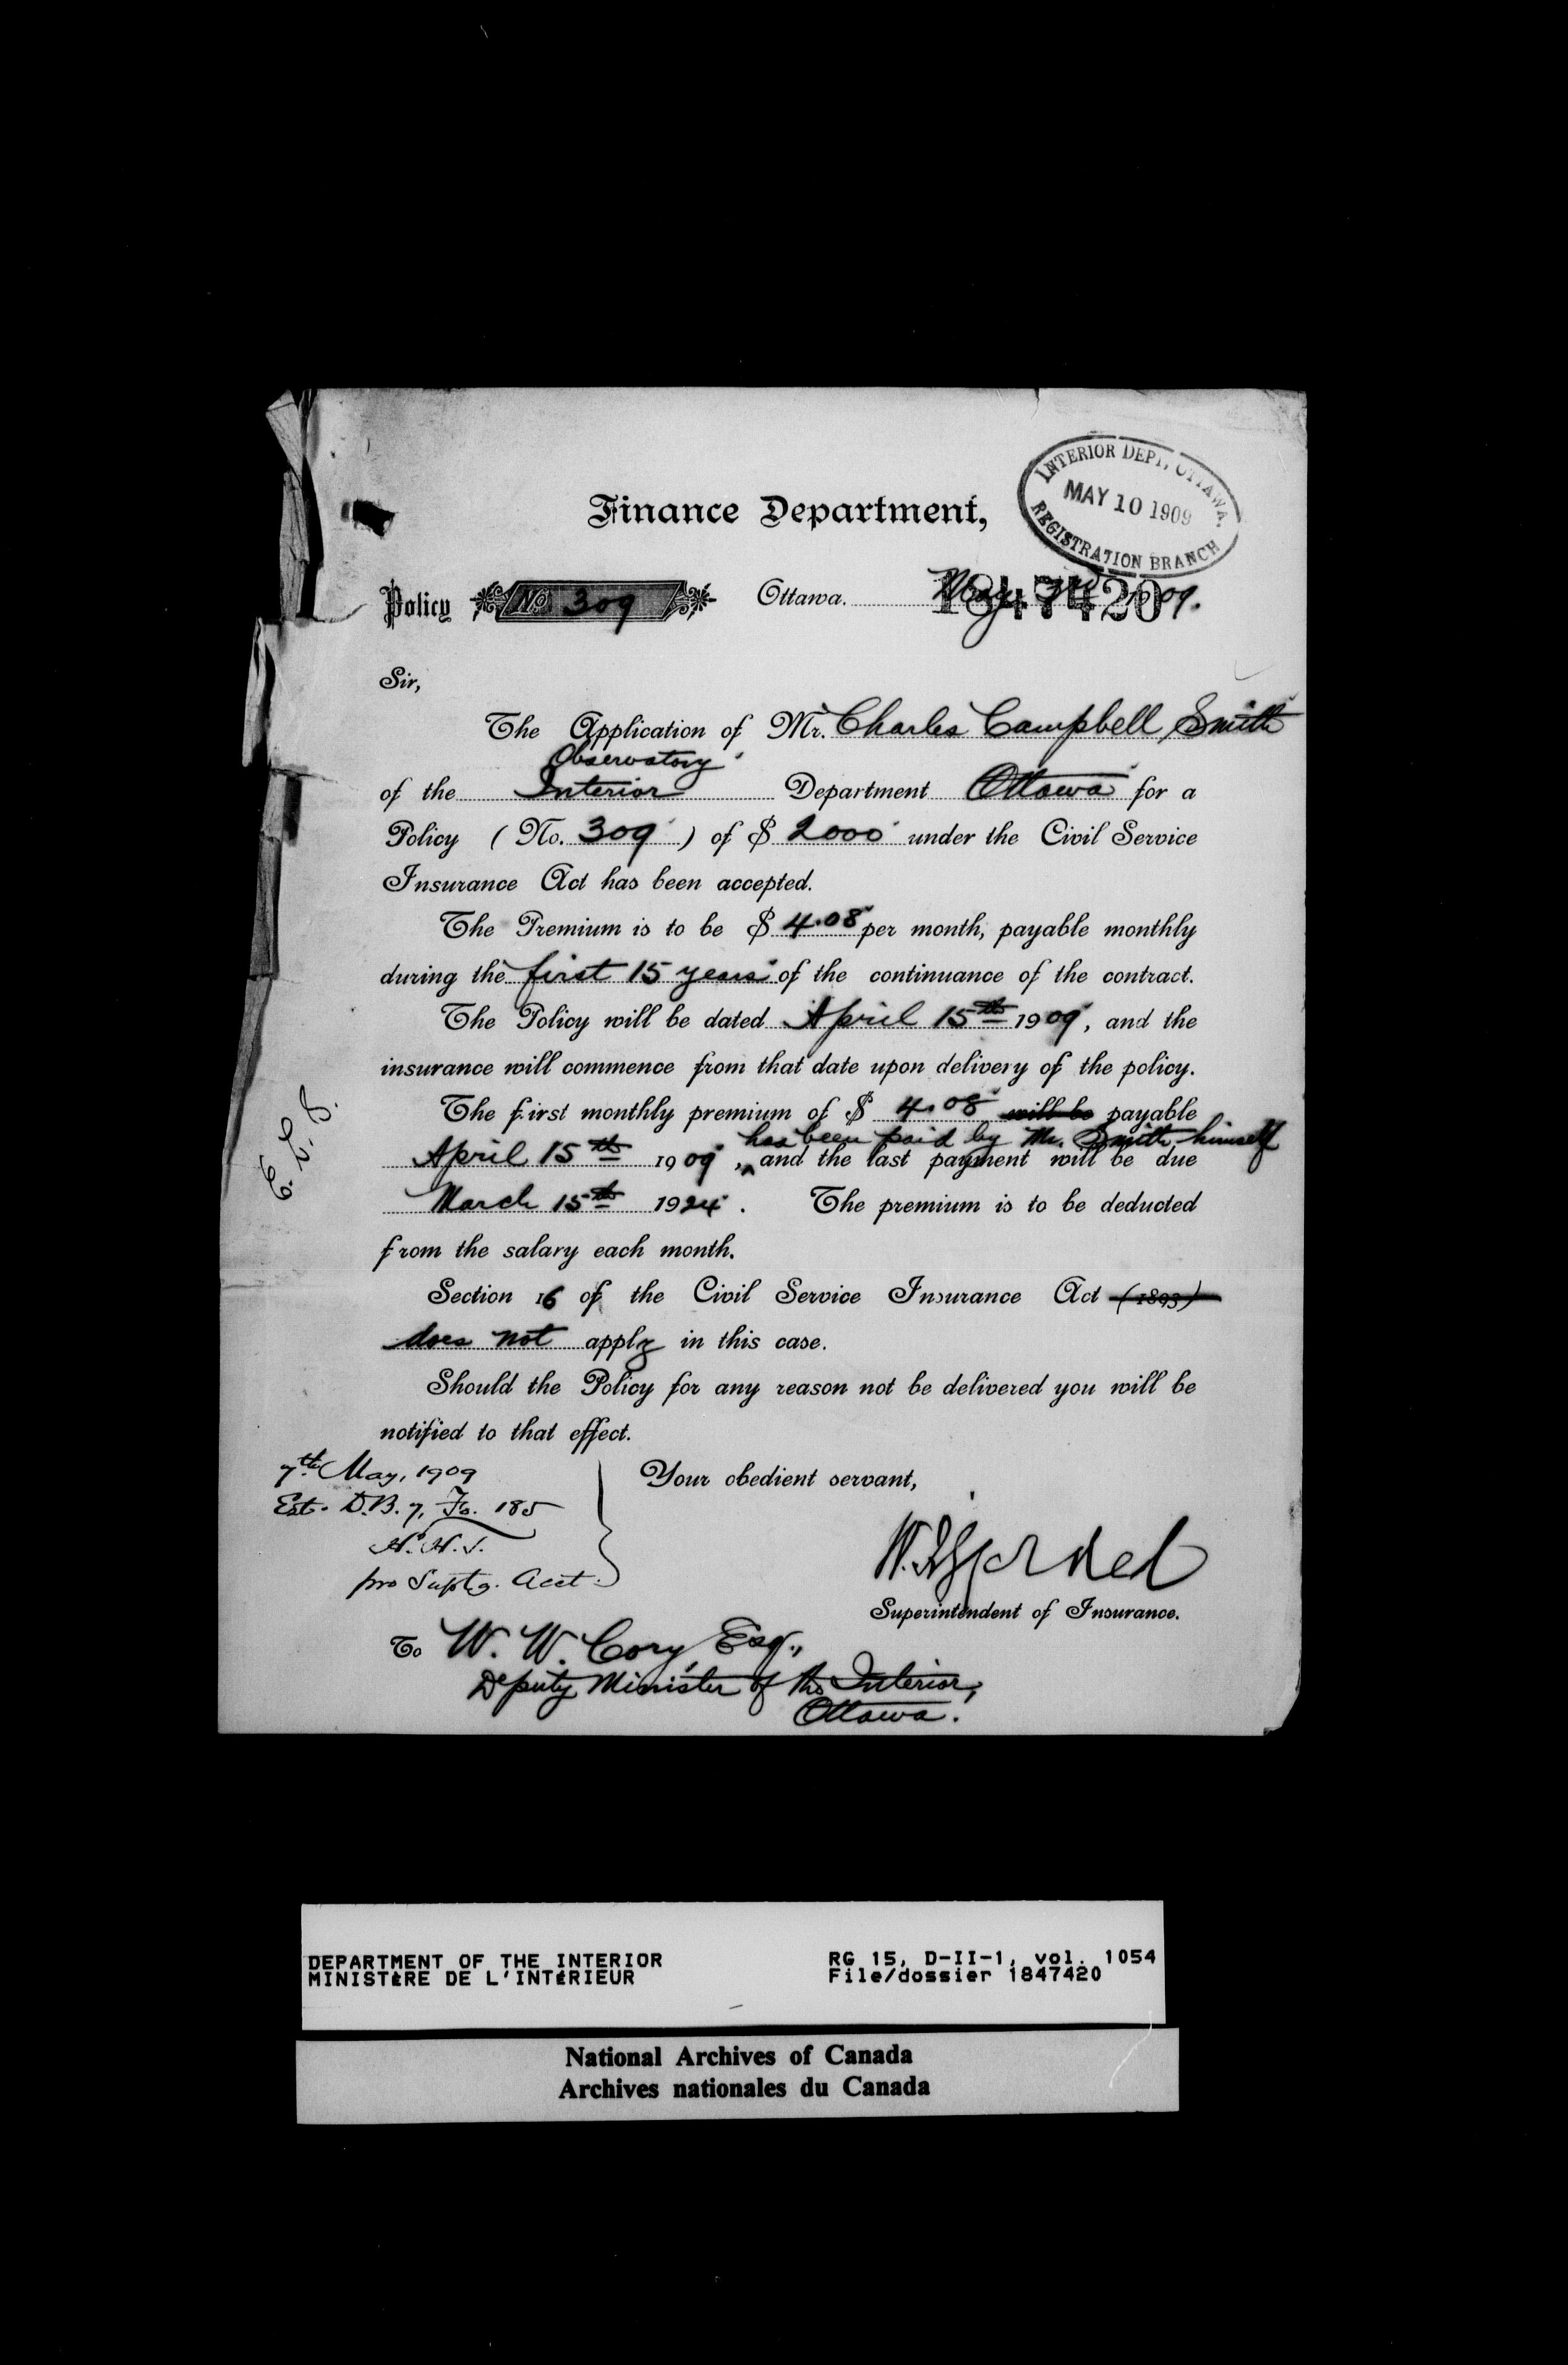 INTERIOR DEPT, OTTAWA.
MAY 10 1909
REGISTRATION BRANCH
Finance Department,
Policy No. 309 Ottawa. May 1909.
1847420
Sir,
The Application of Mr. Charles Campbell Smith
Observatory
of the Interior Department Ottawa for a
Policy (No. 309) of $ 2000 under the Civil Service
Insurance Act has been accepted.
The Premium is to be $ 4.08 per month, payable monthly
during the first 15 years of the continuance of the contract.
The Policy will be dated April 15th 1909, and the
insurance will commence from that date upon delivery of the policy.
The first monthly premium of $ 4.08 will be payable
has been paid by Mr. Smith himself
April 15th 1909, and the last payment will be due
March 15th 1924. The premium is to be deducted
from the salary each month.
Section 16 of the Civil Service Insurance Act (1893)
does not apply in this case.
Should the Policy for any reason not be delivered you will be
notified to that effect.
7th May, 1909
Ent. D.B. 7, Fo. 185
pro Suptg. Acct.
Your obedient servant,
Superintendent of Insurance.
To W. W. Cory, Esq.,
Deputy Minister of the Interior,
Ottawa.
DEPARTMENT OF THE INTERIOR RG 15, D-II-1, vol. 1054
MINISTÈRE DE L'INTÉRIEUR File/dossier 1847420
National Archives of Canada
Archives nationales du Canada